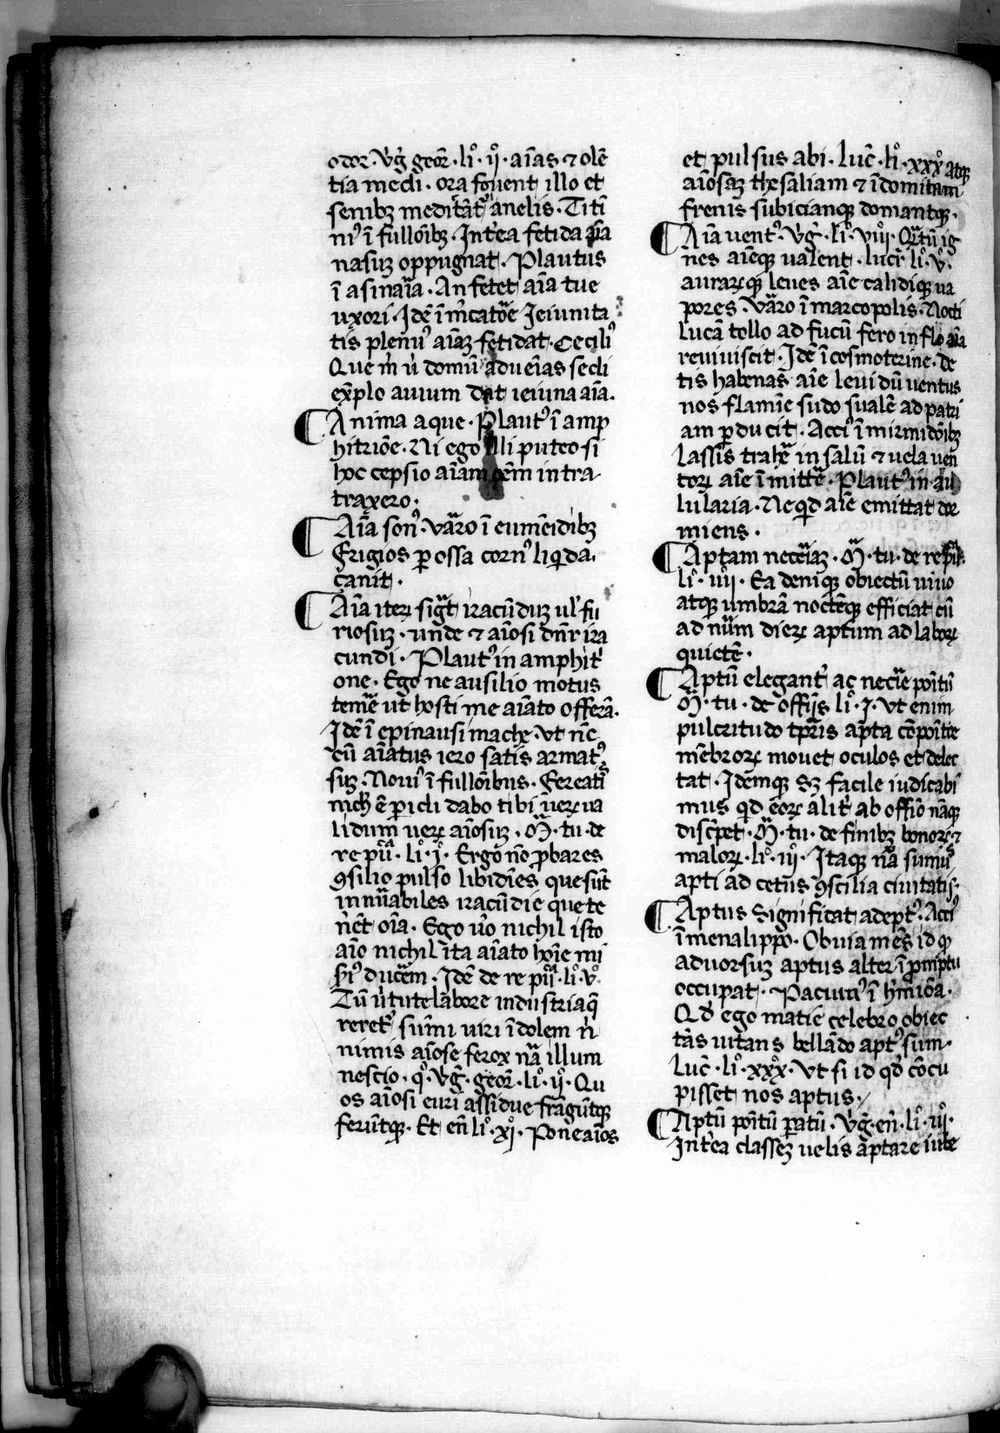 odor · v̓g̓ geor̄ · li° · ii° · aīas ⁊ olē
tia medi · ora fouent illo et
senibꝫ meditāt᷒ anelis · Titi
ni᷒ ī fulloībꝫ · Int̓ea fetida aīa
nasuꝫ oppugnat · Plautus
ī asinaīa · An fetet aīa tue
uxori · Idē ī m̄catōe Ieiunita
tis plenus᷒ aīaꝫ fetidat · Cecili᷒
Que m̓ ū domū adueīas sedi
exp̄lo auium dat ieiuna aīa .
¶ Anima aque · Plaut᷒ ī amp
hitriōe · Ni ego illi puteo si
hoc cepsio aīam oēm intra
traxero ·
¶ Aīa son᷒ · Varro ī eumēidibꝫ
Frigios ꝑ ossa corn᷒ liq̇da
canit ·
¶ Aīa iteꝝ sigt̄ iracūduꝫ ul̓ fu
riosuꝫ · unde ⁊ aīosi dn̄r ira
cundi · Plaut᷒ in amphit̓
one · Ego ne ausilio motus
temē ut hosti me aīato offerā .
Idē ī epinausi mache · ut nc̄
cū aīatus iero satis armat᷒
suꝫ · Noui᷒ ī fulloībus · Fereatī
nich̓ ē ꝑicli dabo tibi ueꝝ ua
lidum ueꝝ aīosuꝫ · M̄ · tu · de
re pu᷒ · li° · i° · Ergo nō ꝓbares
ꝯsilio pulso libidīes que sūt
innūabiles iracūdie que te
nēt oīa · Ego ūo nichil isto
aīo nichil ita aīato hoīe mi
ser᷒ ducem · Idē de re pu᷒ · li° · v°
Tū ūtute labore industriaq̄
reret᷒ sūmi uiri īdolem n̓
nimis aīose ferox nā illum
nescio · q° · v̓g̓ · geor̄ · li° · ii° · Qu
os aīosi euri assidue frāgūtqꝫ
ferūtqꝫ · Et en̄ li° · xi° · Pone aīos
et pulsus abi · Luc̄ · li° · xxx° atqꝫ
aīosaꝫ thesaliam ⁊ īdomitam
frenis subicianqꝫ domantqꝫ ·
¶ Aīa uent᷒ · v̓g̓ · li° · viii° · Qtū ig
nes aīeqꝫ ualent · Lucr̄ li° · v° ·
auraꝝqꝫ leues aīe calidiqꝫ ua
pores · Varro ī marcopolis · Nocti
lucā tollo ad fucū fero inflo aīa
reuiuiscit · Idē ī cosmoterine · de
tis habenas aīe leui dū uentus
nos flamīe sudo sualē ad patri
am ꝑducit · Acci᷒ ī mirmidoībꝫ
Lassis trahē in salū ⁊ uela uen
toꝝ aīe īmittē · Plaut᷒ in au
lularia · Neqd aīe emittat dor
miens ·
¶ Aptam necc̄iaꝫ · M̄ · tu · de re pu᷒ ·
li° · iiii · Ea deniqꝫ obiectū mīuo
atqꝫ umbrā noctēqꝫ efficiat cū
ad nūm dieꝝ aptum ad laboꝝ
quietē ·
¶ Aptū elegant̓ ac necc̄ie poītū
M̄ · tu · de offijs li° · I · Vt enim
pulcritudo tꝑis apta cōpoītie
mēbroꝝ mouet oculos et delec
tat · Idemqꝫ Sꝫ facile iudicabi
mus qd eoꝝ alit̓ ab offīo nāqꝫ
discr̄pet · M̄ · tu · de finibꝫ bonoꝝ ⁊
maloꝝ · li° · iii° · Itaqꝫ nā sumu᷒
apti ad cetus ꝯscilia ciuitatis ·
¶ Aptus significat adept᷒ · Acci᷒
ī menalippo · Obuia mēs id qꝫ
aduorsuꝫ aptus alter ī ꝓmptu
occupat · Pacuui᷒ ī h̓mioā ·
Qd̓ ego matiē celebro obiec
tās uitans bellādo apt᷒ sum ·
Luc̄ · li° · xxx° · Vt si id qd̓ cōcu
pisset nos aptus ·
¶ Aptū poītū ꝑatū · v̓g̓ · en̄ · li° · iii° ·
Int̓ea classeꝫ uelis aptare iube